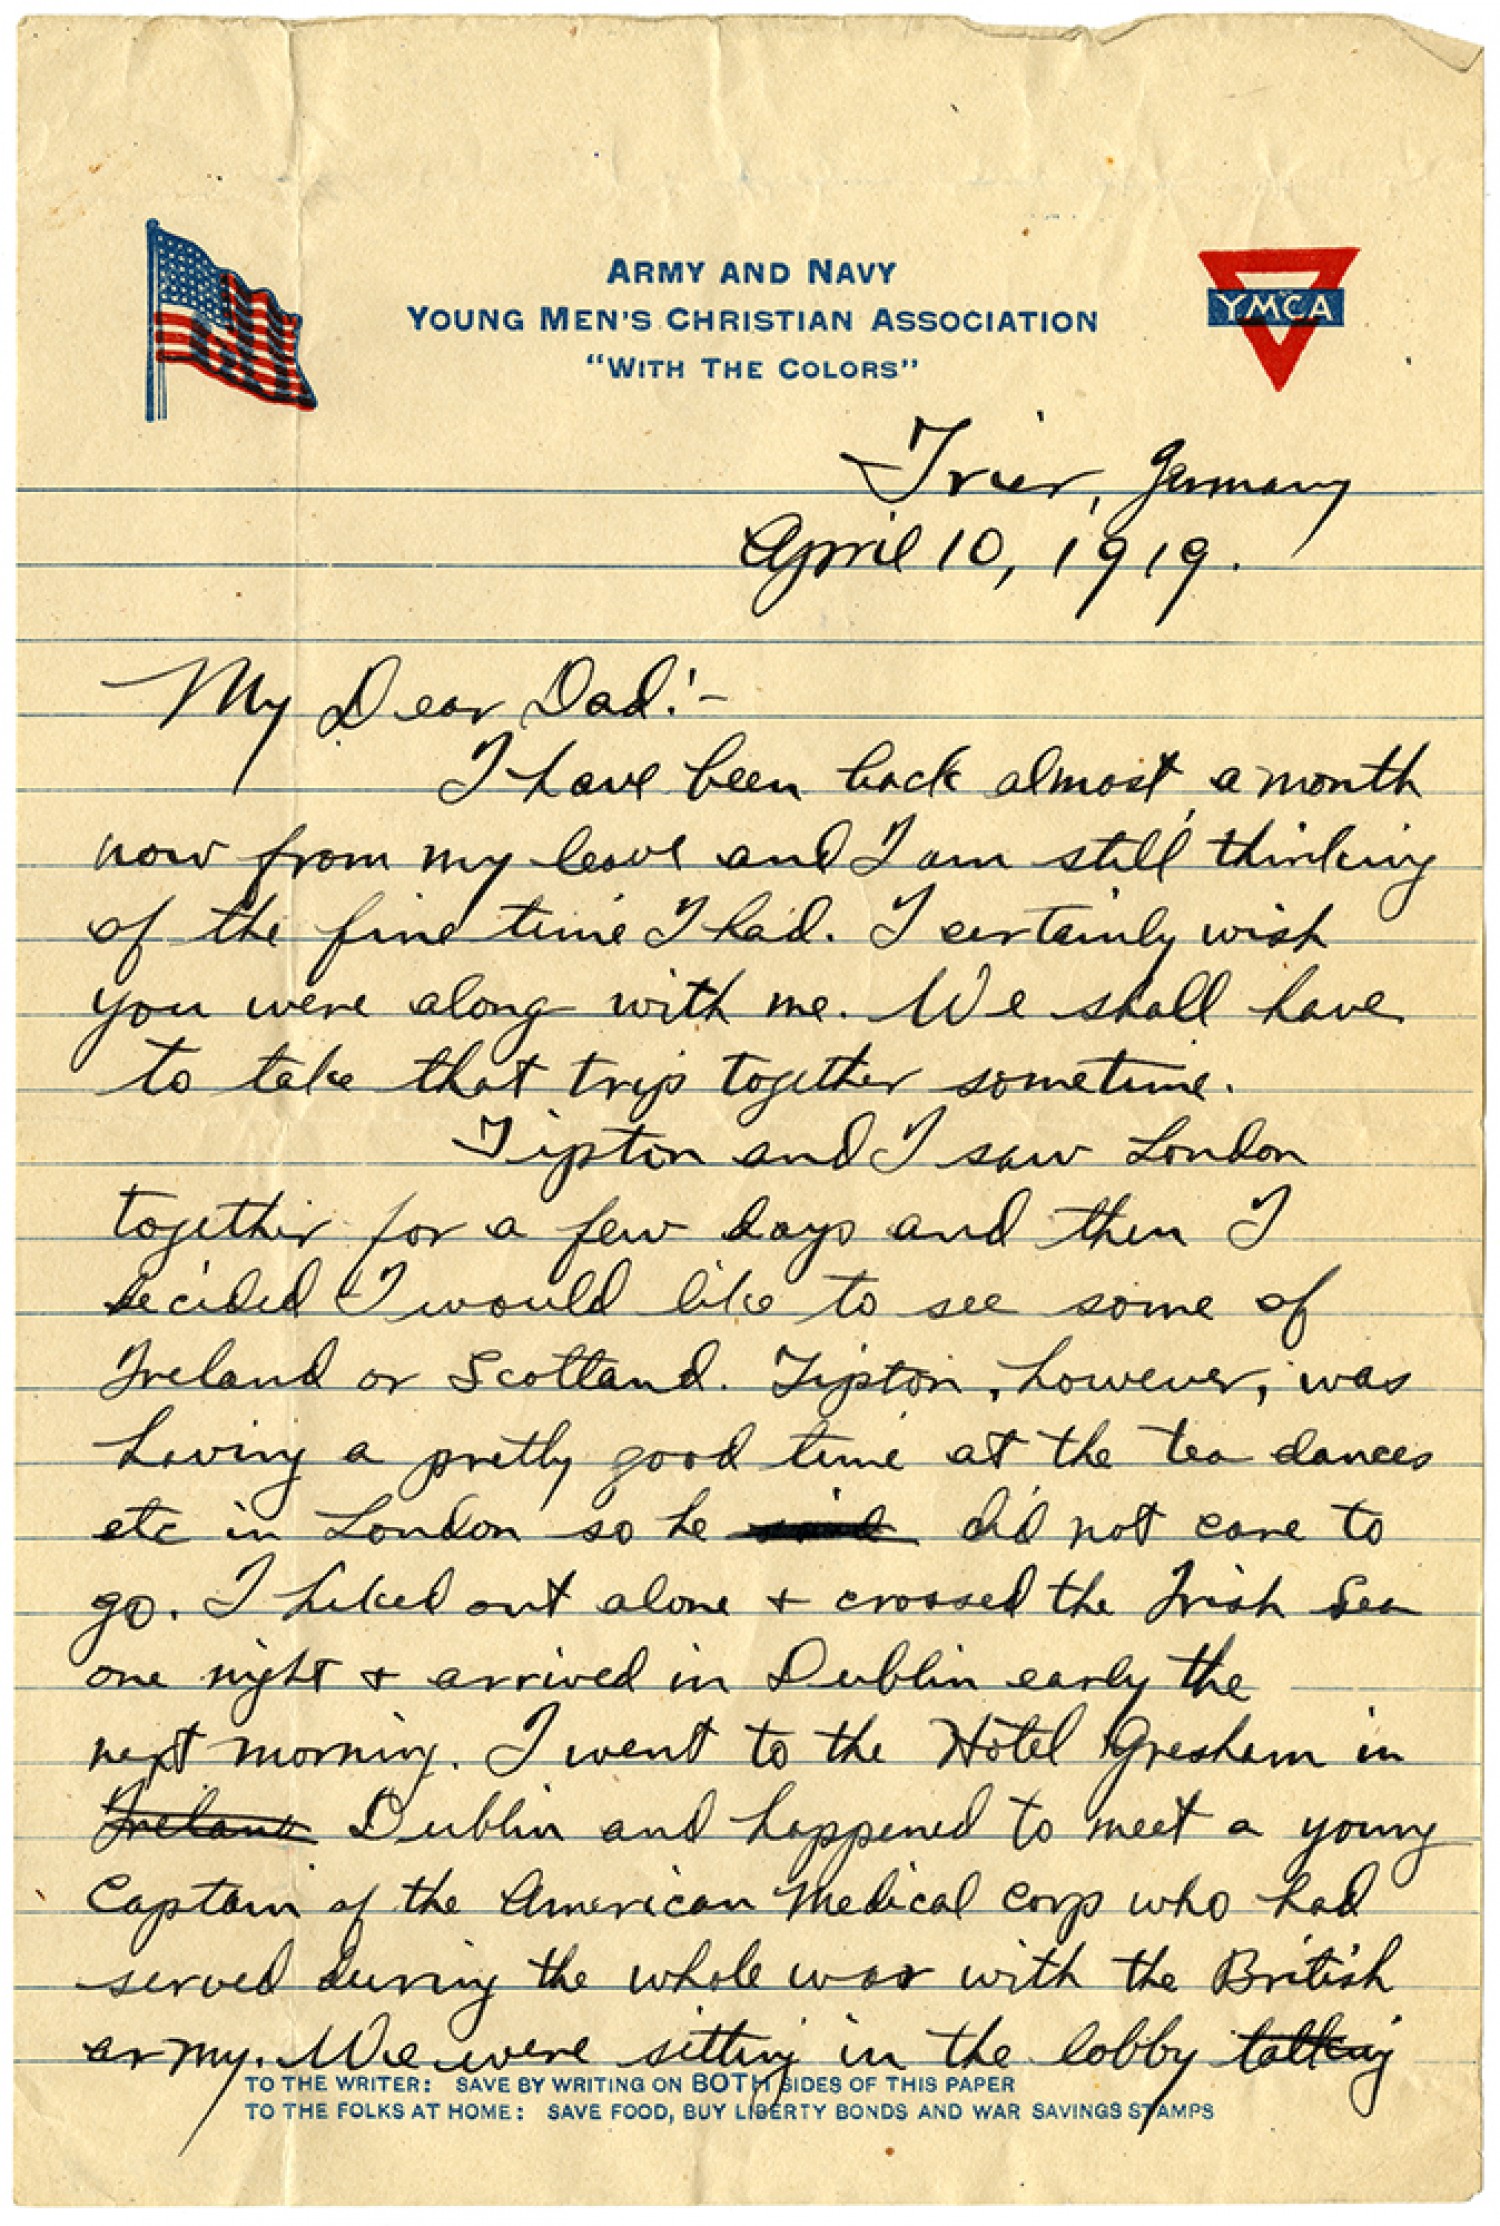 ARMY AND NAVY
YOUNG MEN'S CHRISTIAN ASSOCIATION
"WITH THE COLORS"
YMCA
Trier, Germany
April 10, 1919.
My Dear Dad:-
I have been back almost a month
now from my leave and I am still thinking
of the fine time I had. I certainly wish
you were along with me. We shall have
to take that trip together sometime.
Tipton and I saw London
together for a few days and then I
decided I would like to see some of
Ireland or Scotland. Tipton, however, was
having a pretty good time at the tea dances
etc in London so he said did not care to
go. I hiked out alone + crossed the Irish Sea
one night + arrived in Dublin early the
next morning. I went to the Hotel Gresham in
Ireland Dublin and happened to meet a young
Captain of the American Medical Corp who had
served during the whole war with the British
army. We were sitting in the lobby talking
TO THE WRITER: SAVE BY WRITING ON BOTH SIDES OF THIS PAPER
TO THE FOLKS AT HOME: SAVE FOOD, BUY LIBERTY BONDS AND WAR SAVINGS STAMPS